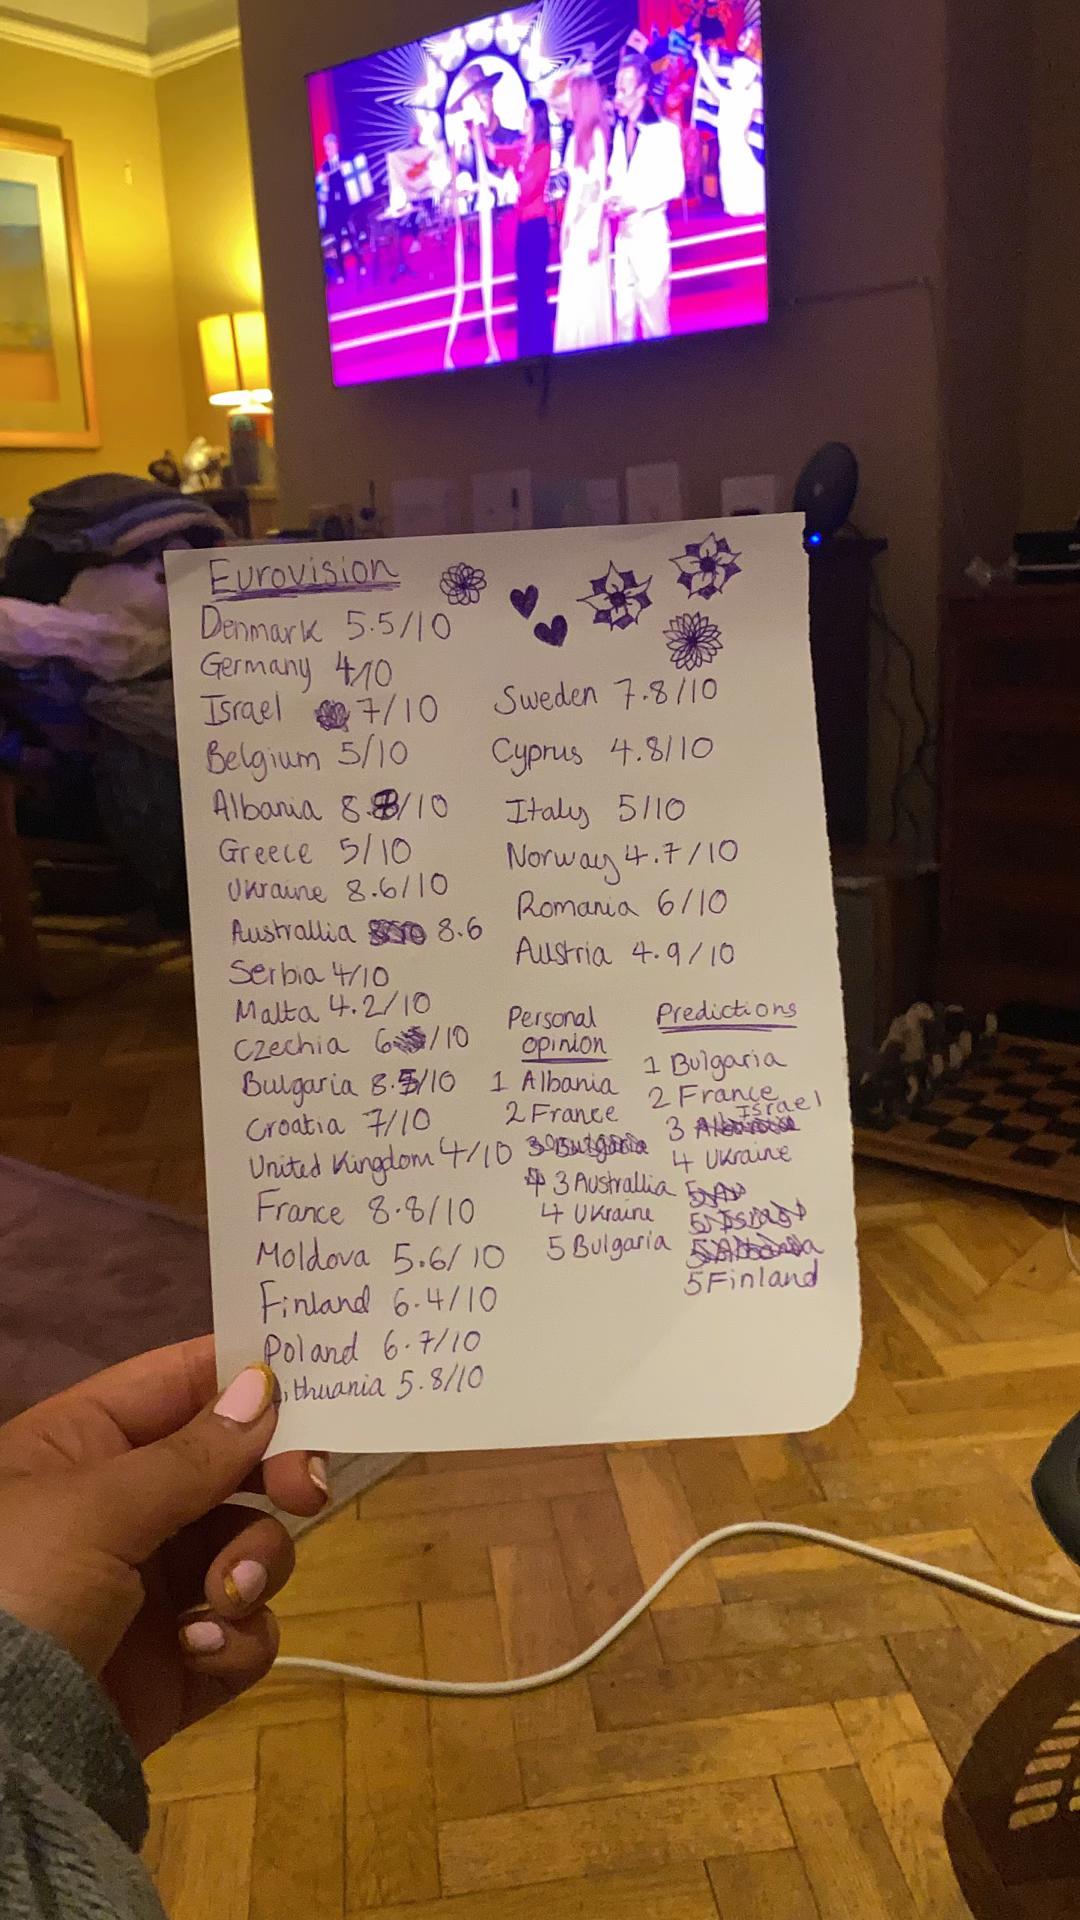 Eurovision
Denmark 5.5/10
Germany 4/10
Israel 7/10
Belgium 5/10
Albania 8.8/10
Greece 5/10
Ukraine 8.6/10
Australlia 8.6
Serbia 4/10
Malta 4.2/10
Czechia 6/10
Bulgaria 8.5/10
Croatia 7/10
United Kingdom 4/10
France 8.8/10
Moldova 5.6/10
Finland 6.4/10
Poland 6.7/10
ithuania 5.8/10
Sweden 7.8/10
Cyprus 4.8/10
Italy 5/10
Norway 4.7/10
Romania 6/10
Austria 4.9/10
Personal
opinion
1 Albania
2 France
3 Bulgaria
3 Australlia
4 Ukraine
5 Bulgaria
Predictions
1 Bulgaria
2 France
Israel
3 Albania
4 Ukraine
5 Israel
5 Albania
5 Finland